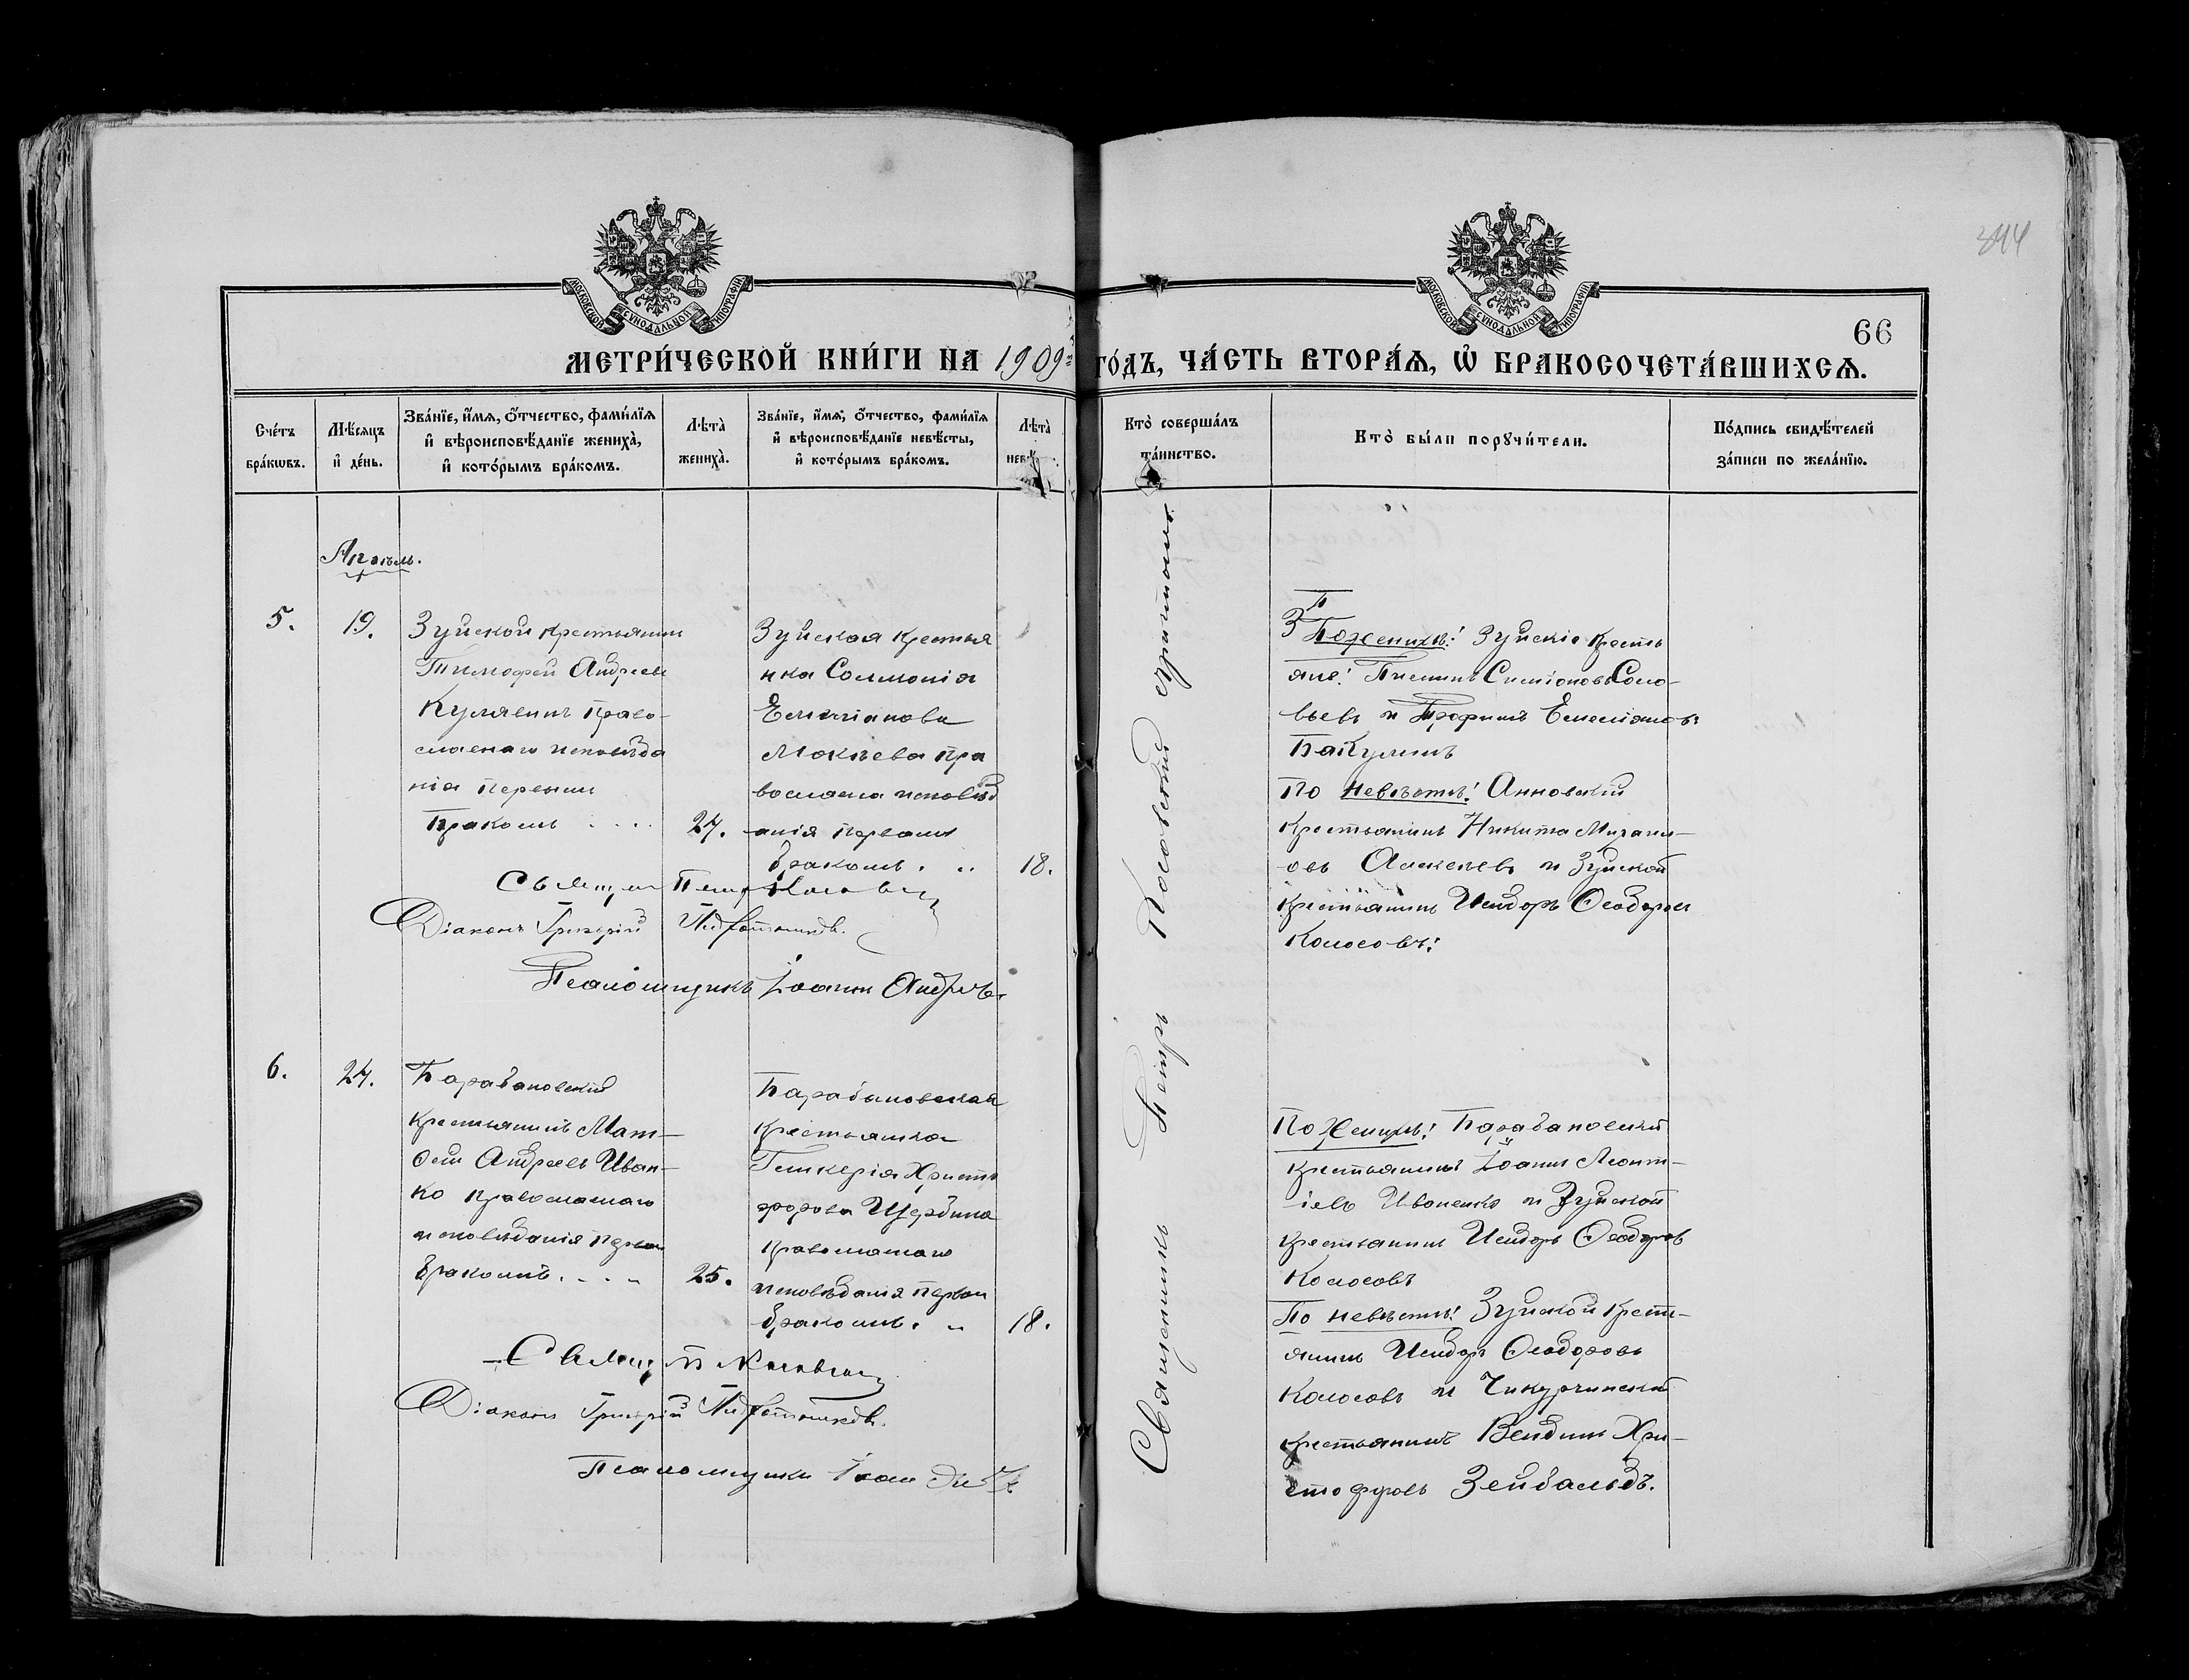 344
МОСКОВСКОЙ СѴНОДАЛЬНОЙ ТИПОГРАФІИ
МОСКОВСКОЙ СѴНОДАЛЬНОЙ ТИПОГРАФІИ
66
МЕТРИ́ЧЕСКОЙ КНИ́ГИ НА 1909 ГО́ДЪ, ЧА́СТЬ ВТОРА́Ѧ, Ѡ҆ БРАКОСОЧЕТА́ВШИХСѦ.
Сче́тъ
бра́кѡвъ.
Мѣ́сяцъ
и҆ де́нь.
Зва́нїе, и҆́мѧ, ѻ҆́тчество, фами́лїѧ
и҆ вѣроисповѣ́данїе жениха̀,
и҆ кото́рымъ бра́комъ.
Лѣта̀
жениха̀.
Зва́нїе, и҆́мѧ, ѻ҆́тчество, фами́лїѧ
и҆ вѣроисповѣ́данїе невѣ́сты,
и҆ кото́рымъ бра́комъ.
Лѣта̀
нев
Кто̀ соверша́лъ
та́инство.
Кто̀ бы́ли порꙋчи́тели.
По́дпись свидѣ́телей
за́писи по жела́нїю.
Апрѣль.
5.
19.
Зуйской крестьянинъ
Тимофей Андреевъ
Кулявинъ право-
славнаго исповѣда
нія первымъ
бракомъ
24.
Зуйская крестья
нка Соломонія
Емиліанова
Мокѣева пра
вославна исповѣд
анія первымъ
бракомъ.
18.
Священ Петръ Косовскій
Діаконъ Григорій
Псаломщикъ Іоаннъ Андреевъ
По женихѣ: Зуйскіе кресть
яне: Пименъ Симіоновъ Соло-
вьевъ и Трофимъ Емеліановъ
Бакулинъ
По невѣстѣ: Анновскій
крестьянинъ Никита
овъ Алексѣевъ и Зуйской
крестьянинъ Исидоръ Ѳеодоровъ
Колосовъ:
6.
24.
Барабановскій
крестьянинъ Мат-
ѳей Андреевъ Иван-
ко православнаго
исповѣданія первымъ
бракомъ.
25.
Барабановская
крестьянка
Гликерія Христо
форова Щербина
православнаго
исповѣданія первым
бракомъ.
18.
Священ П Косовскій
Діаконъ Григорій
Псаломщикъ Іоан
По женихѣ: Барабановскій
крестьянинъ Іоаннъ Леонт-
іевъ Иваненко и Зуйской
крестьянинъ Исидоръ Ѳеодоровъ
Колосовъ
По невѣстѣ: Зуйской крест-
янинъ Исидоръ Ѳеодоровъ
Колосовъ и Чикурчинскій
крестьянинъ Хри-
стофоровъ Зейбальдъ.
Священникъ Петръ Косовскій